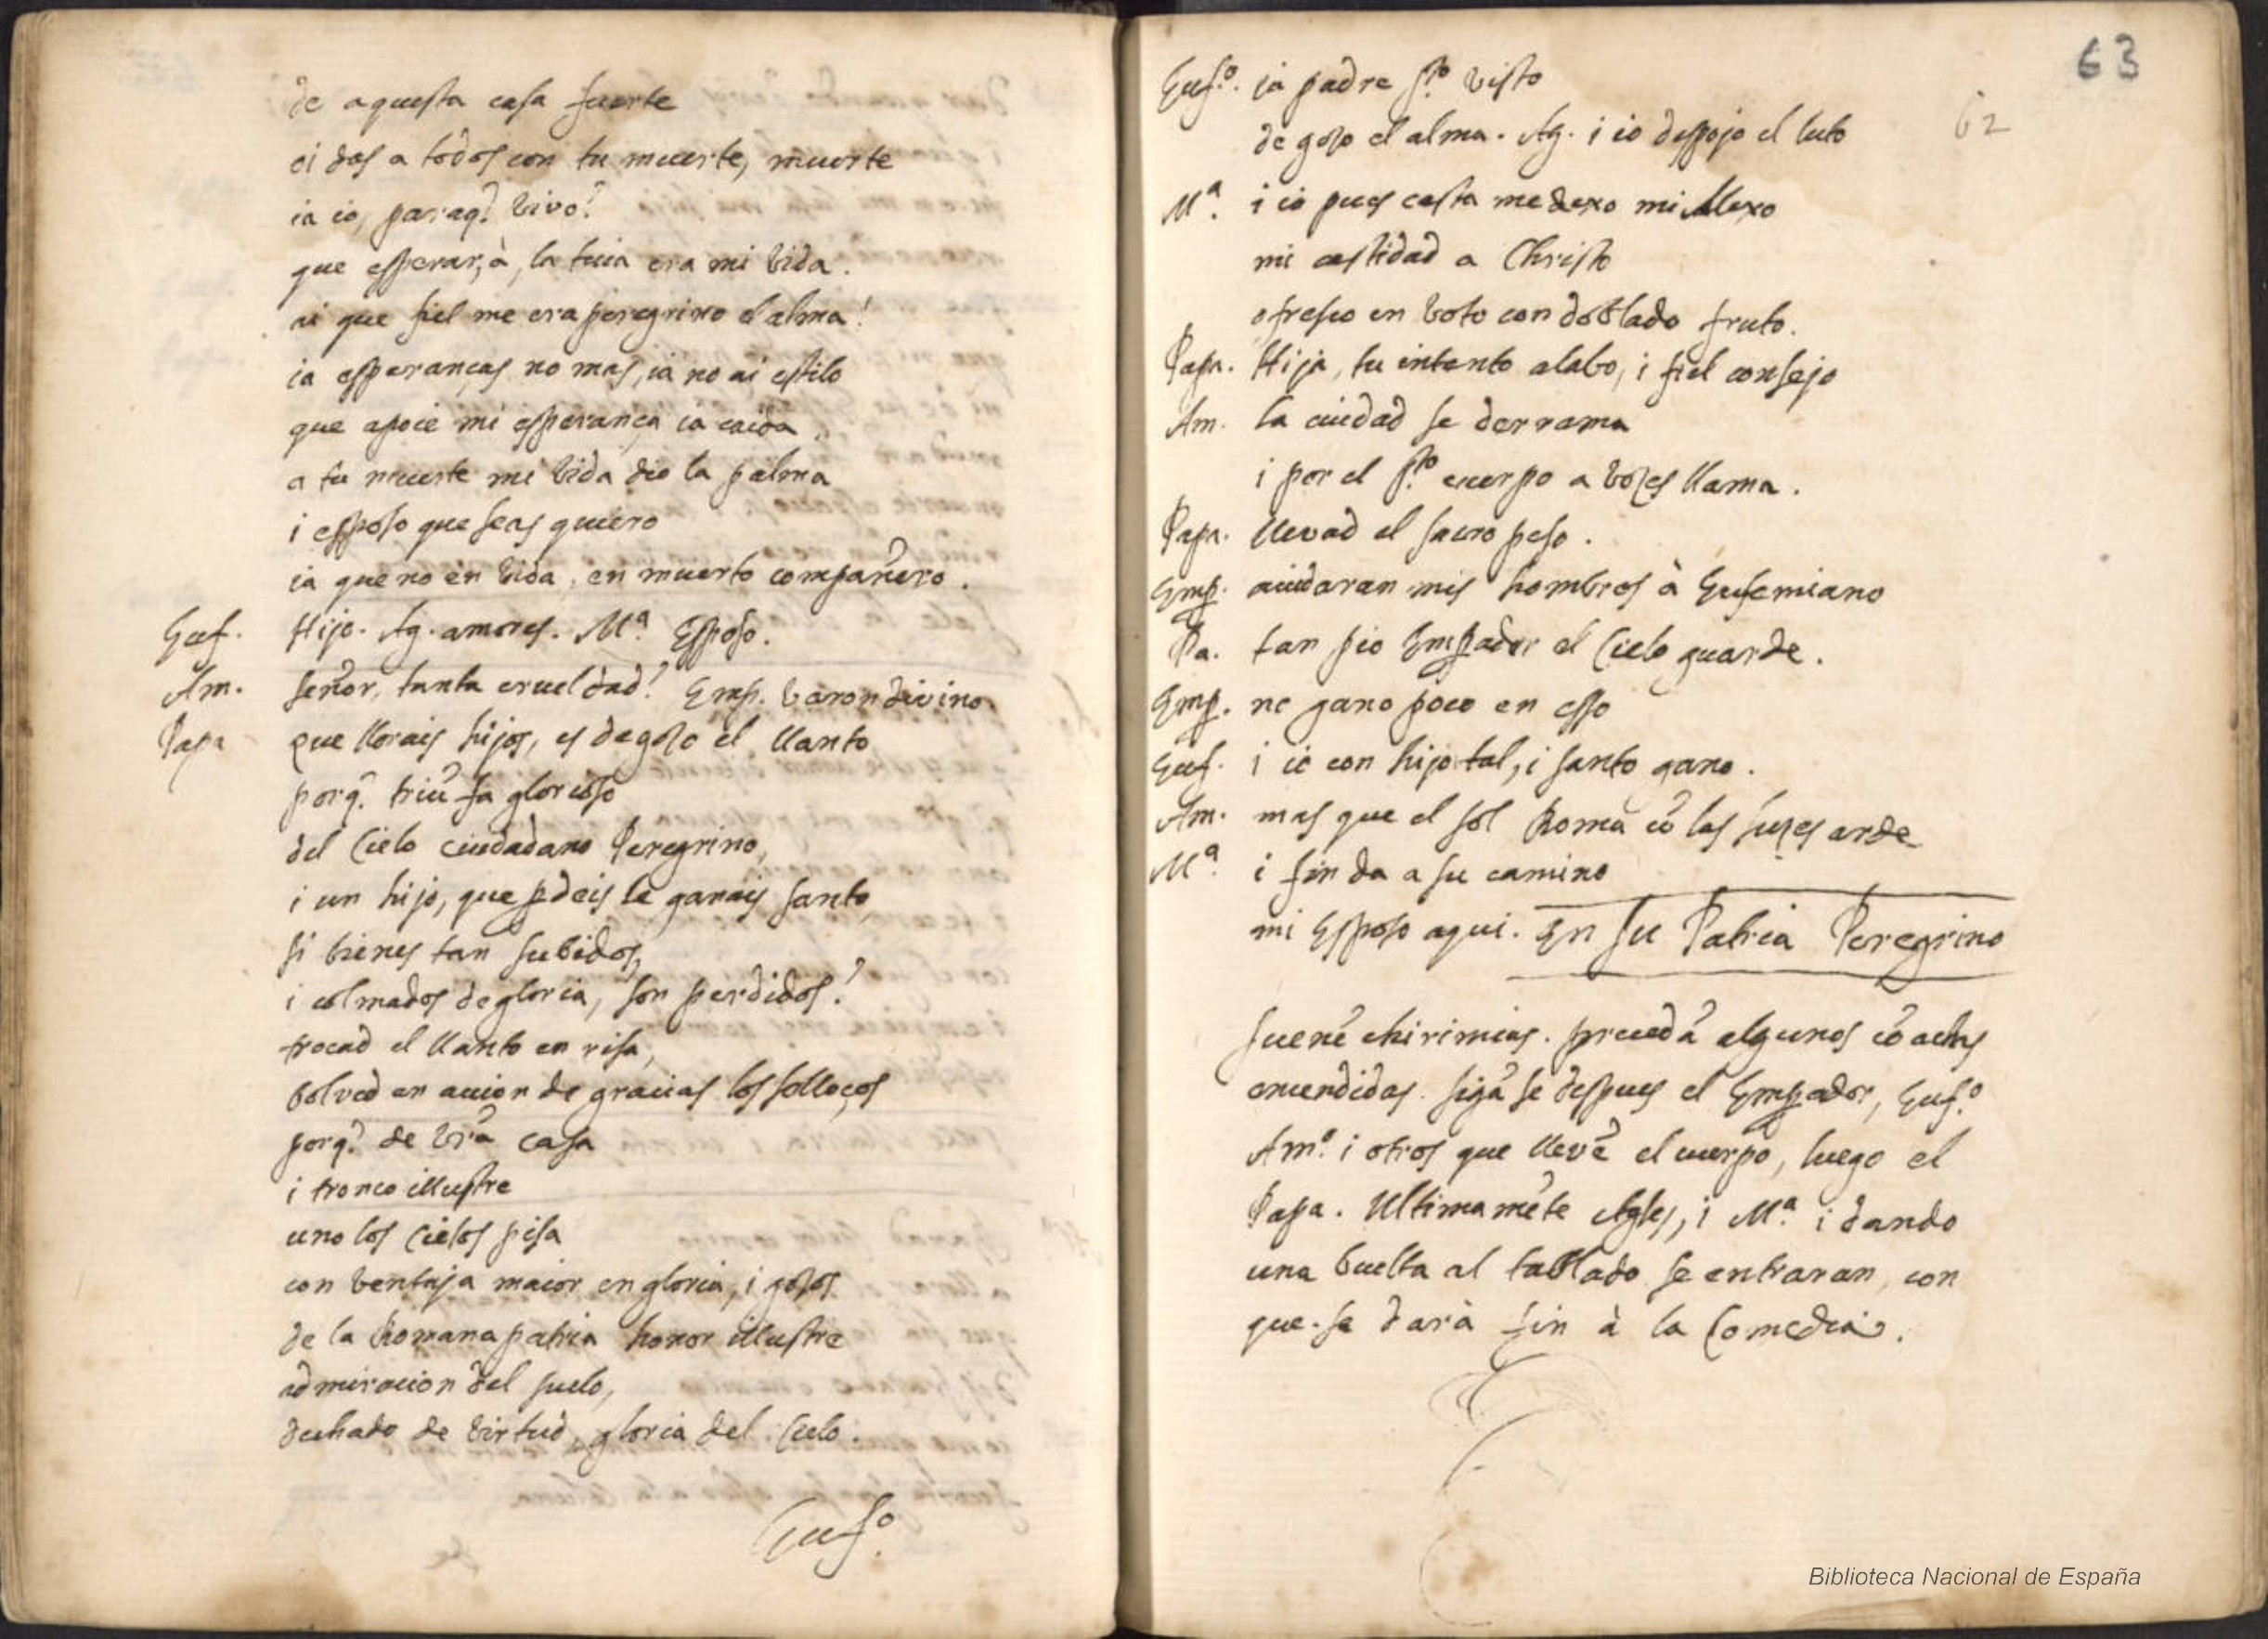 de aquesta casa fuerte
oi das a todos con tu muerte, muerte
ia io, paraq̃? vivo?
que esperar, à, la tuia era mi vida.
ai que fiel me era peregrino el alma!
ia esperanças no mas, ia no ai estilo
que apoie mi esperança ia caida
a tu muerte mi vida dio la palma
i esposo que seas quiero
ia que no en vida, en muerto compañero.
Euf. Hijo. Ag. amores. Mª. Esposo.
Am. señor, tanta crueldad! Emp. varon divino
Papa que llorais hijos, es de gozo el llanto
porq̃. triũfa glorioso
del Cielo ciudadano Peregrino,
i un hijo, que pdeis le ganais santo,
si bienes tan subidos,
i colmados de gloria, son perdidos?
trocad el llanto en risa,
bolved en accion de gracias los solloços
porq̃? de vr̃a casa
i tronco illustre
uno los Cielos pisa
con ventaja maior en gloria, i gozos
de la Romana patria honor illustre
admiracion del suelo,
dechado de virtud, gloria del Cielo.
Eufº.
63
62
Eufº. ia padre Sᵗᵒ. visto
de gozo el alma. Ag. i io despojo el luto
Mª. i io pues casta me dexo mi Alexo
mi castidad a Christo
ofresco en voto con doblado fruto.
Papa. Hija, tu intento alabo, i fiel consejo
Am. la ciudad se derrama
i por el Sᵗᵒ. cuerpo a vozes llama.
Papa. llevad el sacro peso.
Emp. aiudaran mis hombros à Eufemiano
Pa. tan pio Empador el Cielo guarde.
Emp. no gano poco en esso
Euf. i io con hijo tal, i santo gano.
Am. mas que el sol Roma cõ las luzes arde
Mª. i fin da a su camino
mi Esposo aqui. En su Patria Peregrino
Suenẽ chirimias. precedã algunos cõ achas
encendidas. sigã se despues el Empador, Eufº.
Amº. i otros que llevẽ el cuerpo, luego el
Papa. Ultimamẽte Agles, i Mª. i dando
una buelta al tablado se entraran, con
que se darà fin à la Comedia.
Biblioteca Nacional de España